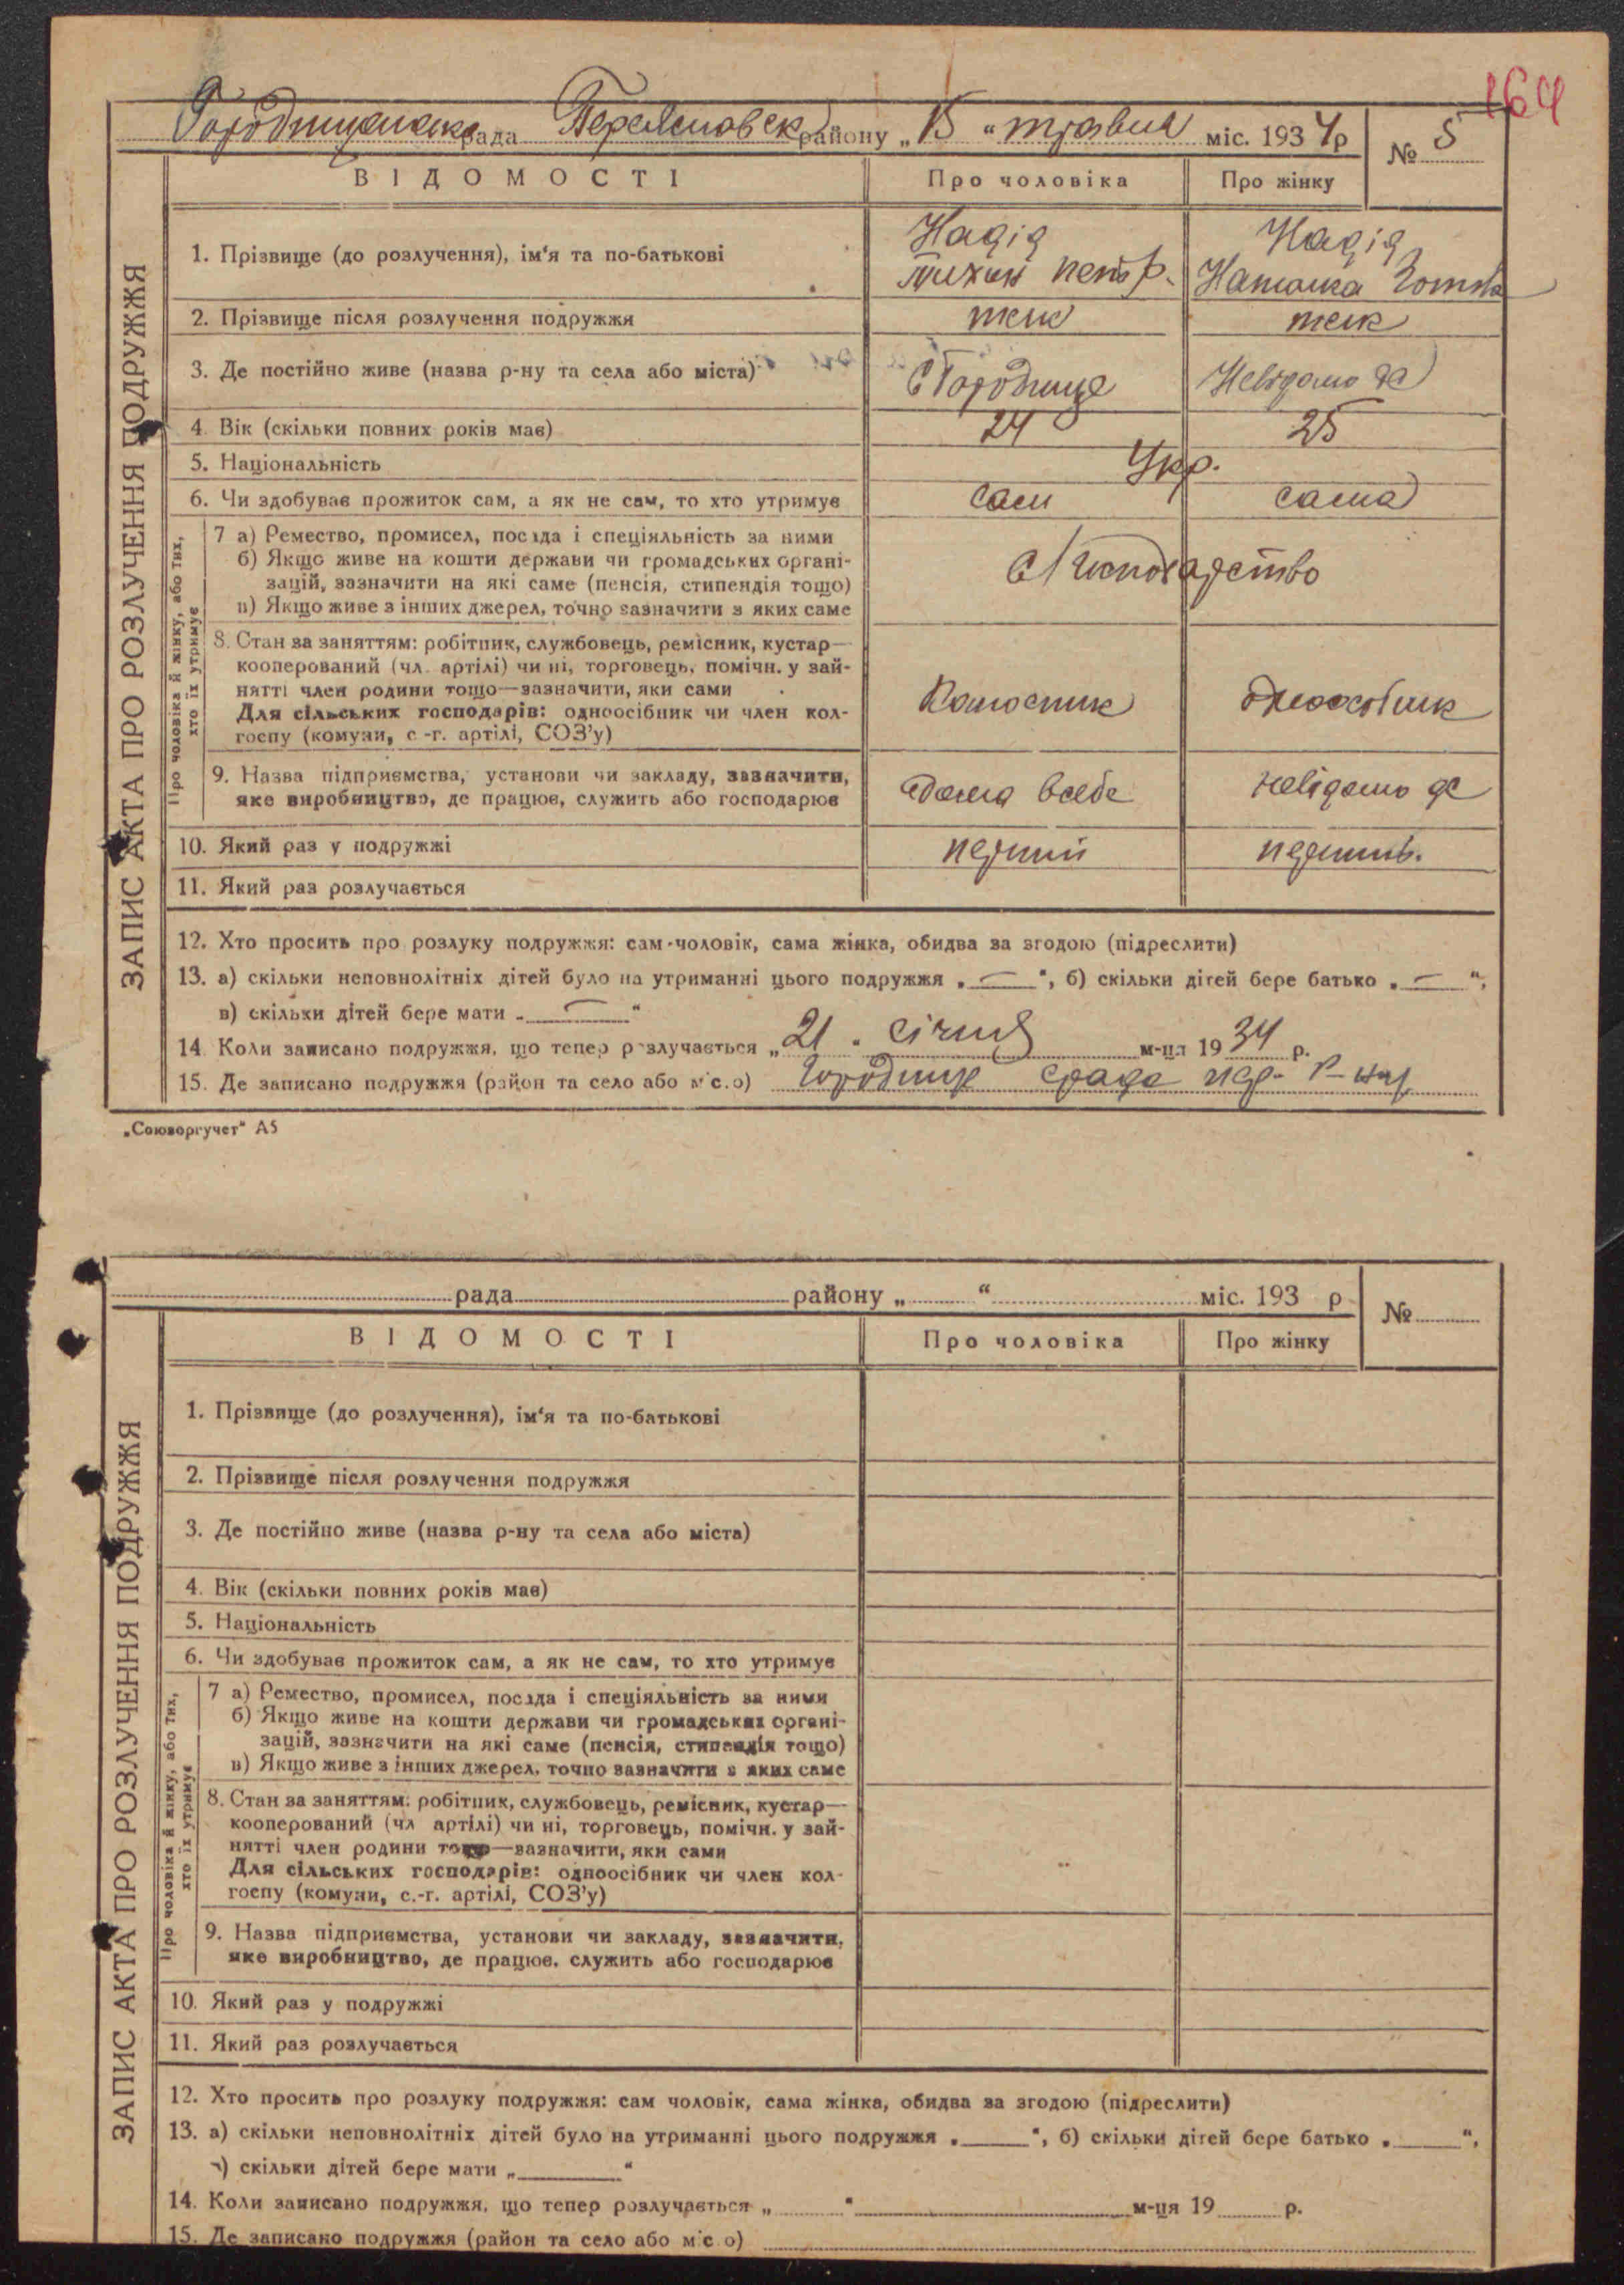 164
рада Переяславськ району „15“ травня міс. 1934р № 5
ВІДОМОСТІ Про чоловіка Про жінку
ЗАПИС АКТА ПРО РОЗЛУЧЕННЯ ПОДРУЖЖЯ
1. Прізвище (до розлучення), ім‘я та по-батькові
Надія Надія
Тихон петр. Наталка
2. Прізвище після розлучення подружжя теж теж
3. Де постійно живе (назва р-ну та села або міста) с Городище Невідомо де
4. Вік (скільки повних років має) 24 25
5. Національність Укр.
6. Чи здобуває прожиток сам, а як не сам, то хто утримує сам сама
Про чоловіка й жінку, або тих,
хто їх утримує
7 а) Ремество, промисел, посада і спеціяльність за ними
б) Якщо живе на кошти держави чи громадських органі-
зацій, зазначити на які саме (пенсія, стипендія тощо)
в) Якщо живе з інших джерел, точно зазначити з яких саме
с/господарство
8. Стан за заняттям: робітник, службовець, ремісник, кустар—
кооперований (чл. артілі) чи ні, торговець, помічн. у зай-
нятті член родини тощо—зазначити, яки сами
Для сільських господарів: одноосібник чи член кол-
госпу (комуни, с.-г. артілі, СОЗ’у)
одноосібник
9. Назва підприємства, установи чи закладу, зазначити,
яке виробництво, де працює, служить або господарює
вдома в себе невідомо де
10. Який раз у подружжі перший
11. Який раз розлучається
12. Хто просить про розлуку подружжя: сам чоловік, сама жінка, обидва за згодою (підреслити)
13. а) скільки неповнолітніх дітей було на утриманні цього подружжя „ — “, б) скільки дітей бере батько „ — “,
в) скільки дітей бере мати „ — “
14. Коли записано подружжя, що тепер розлучається „ 21 “ січня м-ця 1934 р.
15. Де записано подружжя (район та село або міс.о) Городище срада пер. р-ну
„Союзоргучет“ А5
рада району „ “ міс. 193 р №
ВІДОМОСТІ Про чоловіка Про жінку
ЗАПИС АКТА ПРО РОЗЛУЧЕННЯ ПОДРУЖЖЯ
1. Прізвище (до розлучення), ім‘я та по-батькові
2. Прізвище після розлучення подружжя
3. Де постійно живе (назва р-ну та села або міста)
4. Вік (скільки повних років має)
5. Національність
6. Чи здобуває прожиток сам, а як не сам, то хто утримує
Про чоловіка й жінку, або тих,
хто їх утримує
7 а) Ремество, промисел, посада і спеціяльність за ними
б) Якщо живе на кошти держави чи громадських органі-
зацій, зазначити на які саме (пенсія, стипендія тощо)
в) Якщо живе з інших джерел, точно зазначити з яких саме
8. Стан за заняттям: робітник, службовець, ремісник, кустар—
кооперований (чл артілі) чи ні, торговець, помічн. у зай-
нятті член родини тощо—зазначити, яки сами
Для сільських господарів: одноосібник чи член кол-
госпу (комуни, с.-г. артілі, СОЗ’у)
9. Назва підприємства, установи чи закладу, зазначити,
яке виробництво, де працює, служить або господарює
10. Який раз у подружжі
11. Який раз розлучається
12. Хто просить про розлуку подружжя: сам чоловік, сама жінка, обидва за згодою (підреслити)
13. а) скільки неповнолітніх дітей було на утриманні цього подружжя „ “, б) скільки дітей бере батько „ “,
в) скільки дітей бере мати „ “
14. Коли записано подружжя, що тепер розлучається „ “ м-ця 19 р.
15. Де записано подружжя (район та село або міс о)